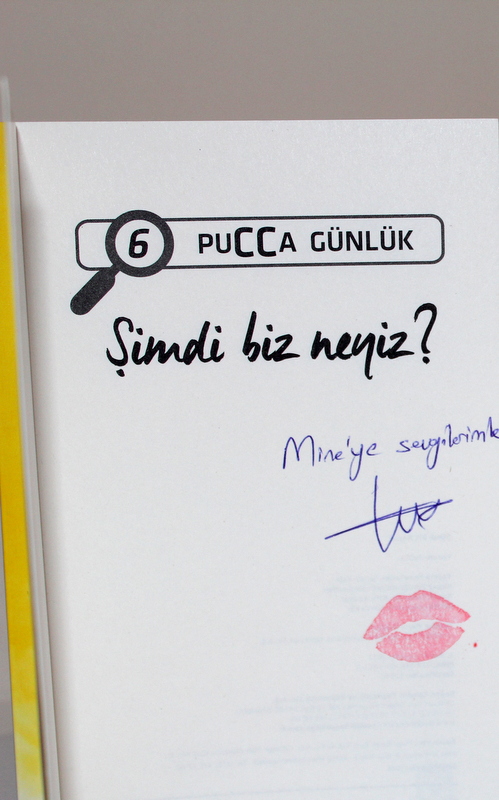 6 PUCCA GÜNLÜK
Şimdi biz neyiz?
Mine'ye sevgilerimle